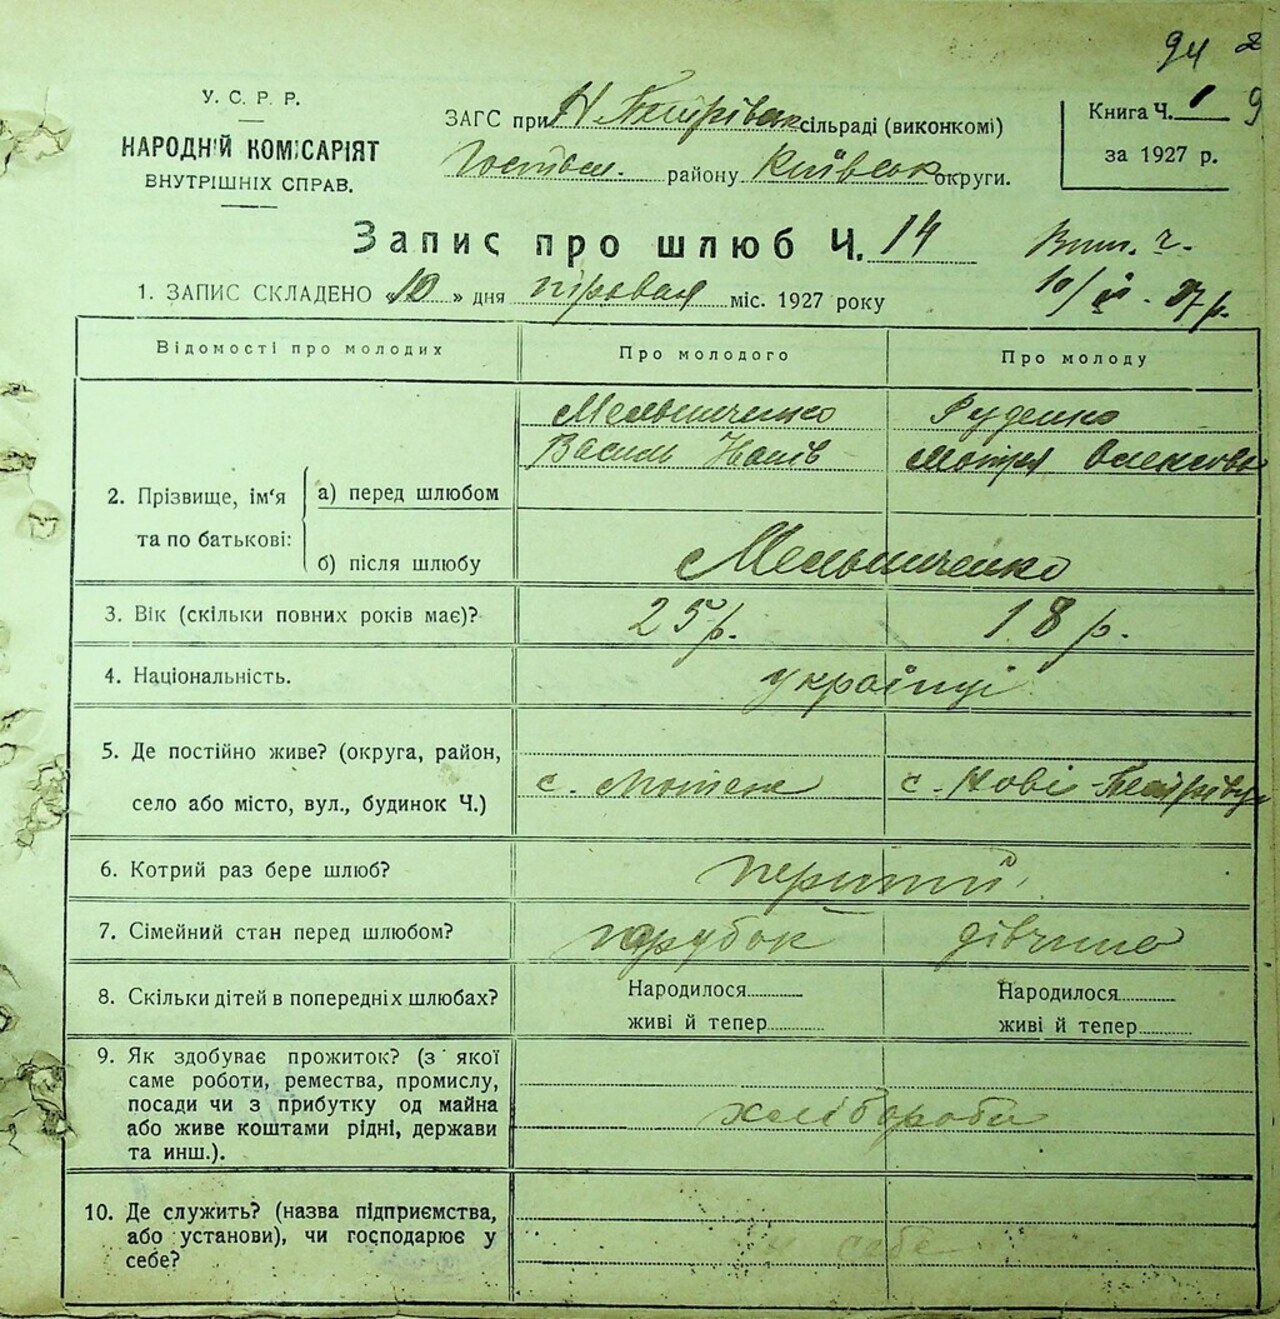 94
У. С. Р. Р.
НАРОДНІЙ КОМІСАРІЯТ
ВНУТРІШНІХ СПРАВ.
ЗАГС при Н Петрівськ сільраді (виконкомі)
Гостом. району Київськ округи.
Книга Ч. 1
за 1927 р.
Запис про шлюб Ч. 14
1. ЗАПИС СКЛАДЕНО «10» дня міс. 1927 року
Відомості про молодих
Про молодого
Про молоду
2. Прізвище, ім'я та по батькові:
а) перед шлюбом
Мельниченко
Василь
Руденко
Мотря Олексієвн
б) після шлюбу
Мельниченко
3. Вік (скільки повних років має)?
25 р.
18 р.
4. Національність.
українці
5. Де постійно живе? (округа, район,
село або місто, вул., будинок Ч.)
с. Мотиж
с. Нові-Петрівці
6. Котрий раз бере шлюб?
перший
7. Сімейний стан перед шлюбом?
парубок
дівчина
8. Скільки дітей в попередніх шлюбах?
Народилося
живі й тепер
Народилося
живі й тепер
9. Як здобуває прожиток? (з якої
саме роботи, ремества, промислу,
посади чи з прибутку од майна
або живе коштами рідні, держави
та инш.).
хлібороби
10. Де служить? (назва підприємства,
або установи), чи господарює у
себе?
у себе